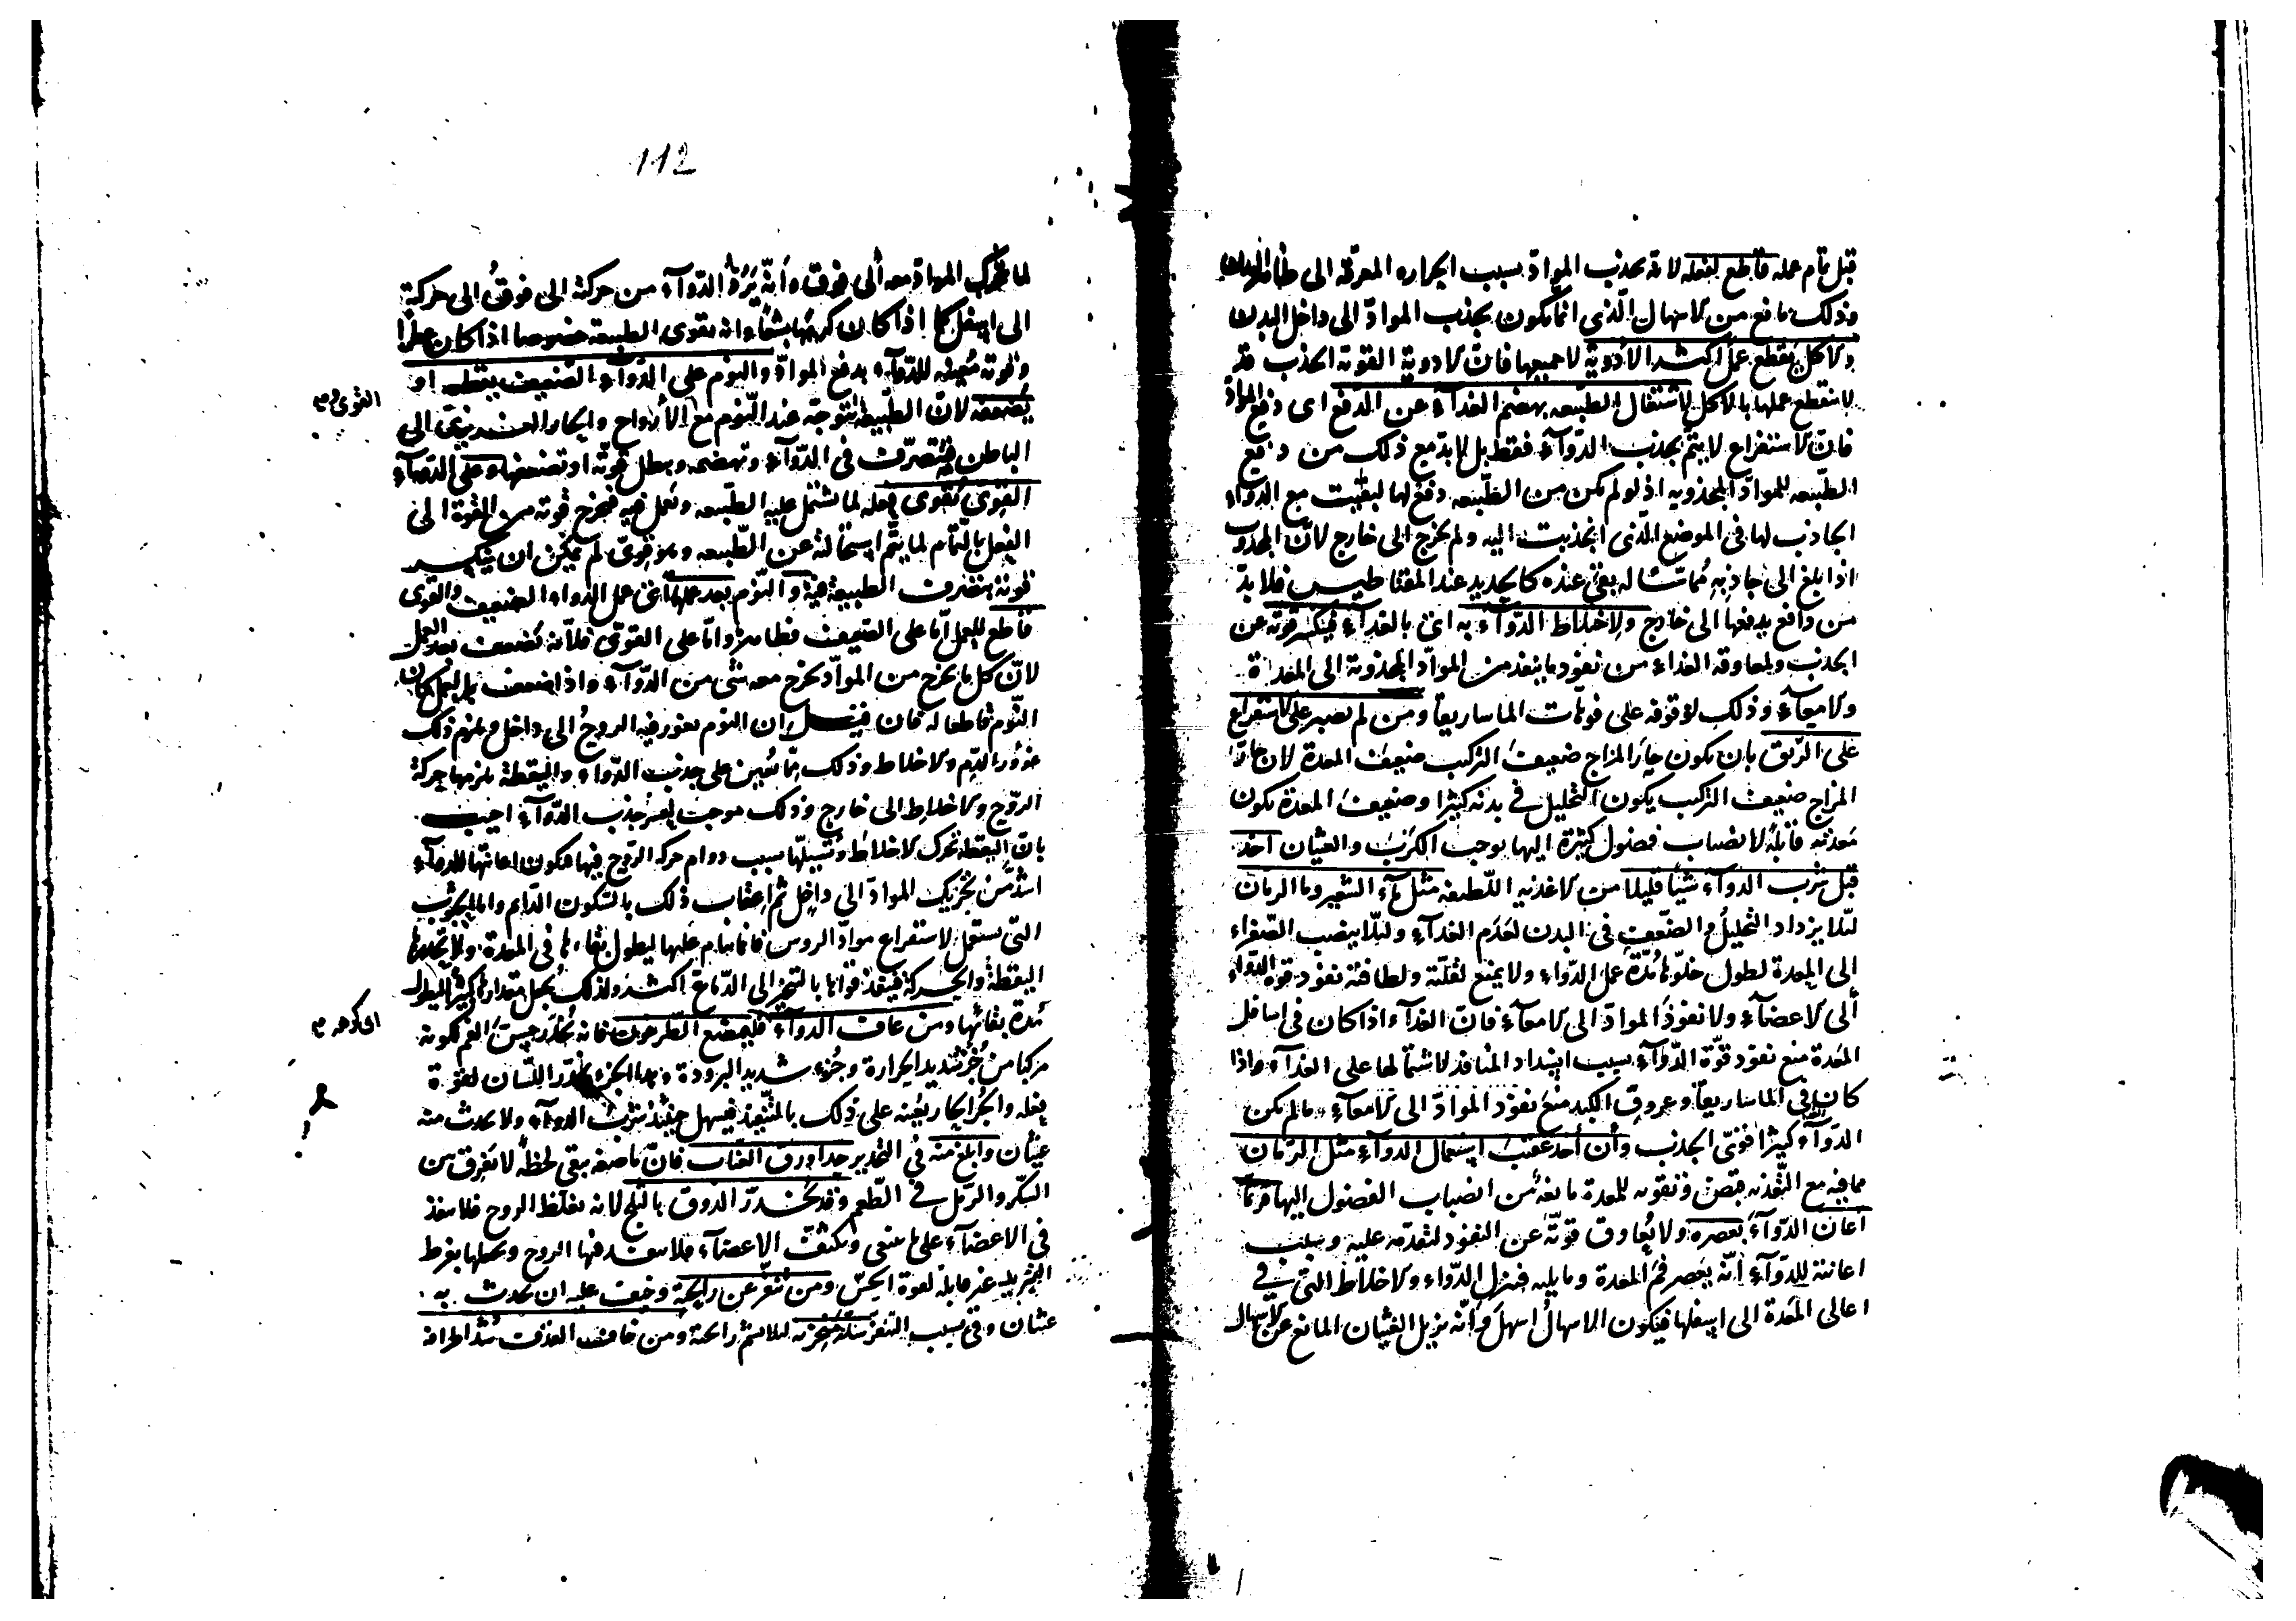 قبل تمام عمله قاطع لفعله لانه يجذب المواد بسبب الحراره المعرقة الى ظاهر البدن
وذلك مانع من الاسهال الذي انما يكون بجذب المواد الى داخل البدن
والاكل يقطع عمل اكثر الأدوية لا جميعها فان الادوية القوية الجذب قد
لا ينقطع عملها بالاكل لاشتغال الطبيعه بهضم الغذآء عن الدفع اى دفع المواد
فان الاستفراغ لا يتم بجذب الدوآء فقط بل لا بد مع ذلك من دفع
الطبيعه للمواد المجذوبه اذ لو لم يكن من الطبيعه دفع لها لبقيت مع الدواء
الجاذب لها في الموضع الذي انجذبت اليه ولم يخرج الى خارج لان المجذوب
اذا بلغ الى جاذبه مماسا له بقى عنده كالحديد عند المقناطيس فلا بد
من دافع يدفعها الى خارج ولاختلاط الدوآء به اى بالغذآء فينكسر قوته عن
الجذب ولمعاوقة الغذاء من نفوذ ما ينفذ من المواد المجذوبة الى المعدة
والامعآء وذلك لوقوفه على فوهات الماساريقا ومن لم يصبر على الاستفراغ
على الريق بان يكون حار المزاج ضعيف التركيب ضعيف المعدة لان حار
المزاج ضعيف التركيب يكون التحليل في بدنه كثيرا وضعيف المعدة يكون
معدته قابلة لانصباب فضول كثيرة اليها يوجب الكرب والغثيان اخذ
قبل شرب الدوآء شيئا قليلا من الاغذيه اللطيفه مثل مآء الشعير وما الرمان
لئلا يزداد التحليل والضعف في البدن لعدم الغذآء ولئلا ينصب الصفراء
الى المعدة لطول خلوها مدة عمل الدواء ولا يمنع لقلته ولطافته نفوذ قوة الدواء
الى الاعضآء ولا نفوذ المواد الى الامعآء فان الغذآء اذا كان في اسافل
المعدة منع نفوذ قوة الدوآء بسبب انسداد المنافذ لاشتمالها على الغذآء واذا
كان في الماساريقا وعروق الكبد منع نفوذ المواد الى الامعآء مالم يكن
الدوآء كثيرا قوى الجذب وان أخذ عقيب استعمال الدوآء مثل الرمان
مما فيه مع التغذيه قبض وتقويه للمعدة مانعة من انصباب الفضول اليها فربما
اعان الدوآء بعصره ولا يعاوق قوته عن النفوذ لتقدمه عليه وسبب
اعانته للدوآء انه يعصر فم المعدة وما يليه فينزل الدواء والاخلاط التى في
اعالى المعدة الى اسفلها فيكون الاسهال اسهل وانه يزيل الغثيان المانع عن الاسهال
112
لما تحرك المواد معه الى فوق وانه يرد الدوآء من حركة الى فوق الى حركة
الى اسفل كما اذا كان كريها بشعا وانه يقوى الطبيعة خصوصا اذا كان عطرا
وقوته معينه للدوآء بدفع المواد والنوم على الدوآء الضعيف يقطعه او
يضعفه لان الطبيعة تتوجه عند النوم مع الأرواح والحار الغريزى الى
الباطن فتتصرف في الدوآء وتهضمه ويبطل قوته او تضعفها وعلى الدوآء
القوى يقوى فعله لما تشتمل عليه الطبيعه وتعمل فيه فيخرج قوته من القوة الى
الفعل بالتمام لما يتم استحالته عن الطبيعه وهو قوى لم يمكن ان ينكسر
قوته بتصرف الطبيعة فيه والنوم بعد عملهما اى عمل الدواء الضعيف والقوى
قاطع للعمل اما على الضعيف فظاهر واما على القوى فلأنه يضعف بعد العمل
لان كل ما يخرج من المواد يخرج معه شى من الدوآء واذا ضعف كان
النوم قاطعا له فان قيل ان النوم يغور فيه الروح الى داخل ويلزم ذلك
غؤر الدم والاخلاط وذلك مما يعين على جذب الدواء واليقظة يلزمها حركة
الروح والاخلاط الى خارج وذلك موجب لعسر جذب الدوآء اجيب
بان اليقظة تحرك الاخلاط وتسيلها بسبب دوام حركة الروح فيها فيكون اعانتها للدوآء
اشد من تحريك المواد الى داخل ثم اعقاب ذلك بالسكون الدايم واما الحبوب
التى تستعمل لاستفراغ مواد الروس فانما ينام عليها ليطول بقاءها في المعدة ولا تحدرها
اليقظة والحركة فينفذ قواها بالتبخر الى الدماغ اكثر ولذلك يجعل مقدارها كبيرا ليطول
مدة بقائها ومن عاف الدوآء فليمضغ الطرخون فانه يخدر حس الفم لكونه
مركبا من جزء شديد الحرارة وجزء شديد البرودة وهذا الجزء يخدر اللسان لقوة
فعله والجزء الحار يعينه على ذلك بالتنفيذ فيسهل حينئذ شرب الدوآء ولا يحدث منه
غثيان وابلغ منه في التخدير جدا ورق العناب فان ماضغه يبقى لحظة لا يفرق بين
السكر والرمل في الطعم وقد يخدر الذوق بالثلج لانه يغلظ الروح فلا ينفذ
في الاعضآء على ما ينبغى ويكثف الاعضآء فلا ينفذ فيها الروح ويجعلها بفرط
التبريد غير قابلة لقوة الحس ومن تنفر عن رايحة وخيف عليه ان يحدث به
غثيان وقى بسبب التنفر سد منخريه لئلا يشم رائحة ومن خاف القذف شد اطرافه
القوى